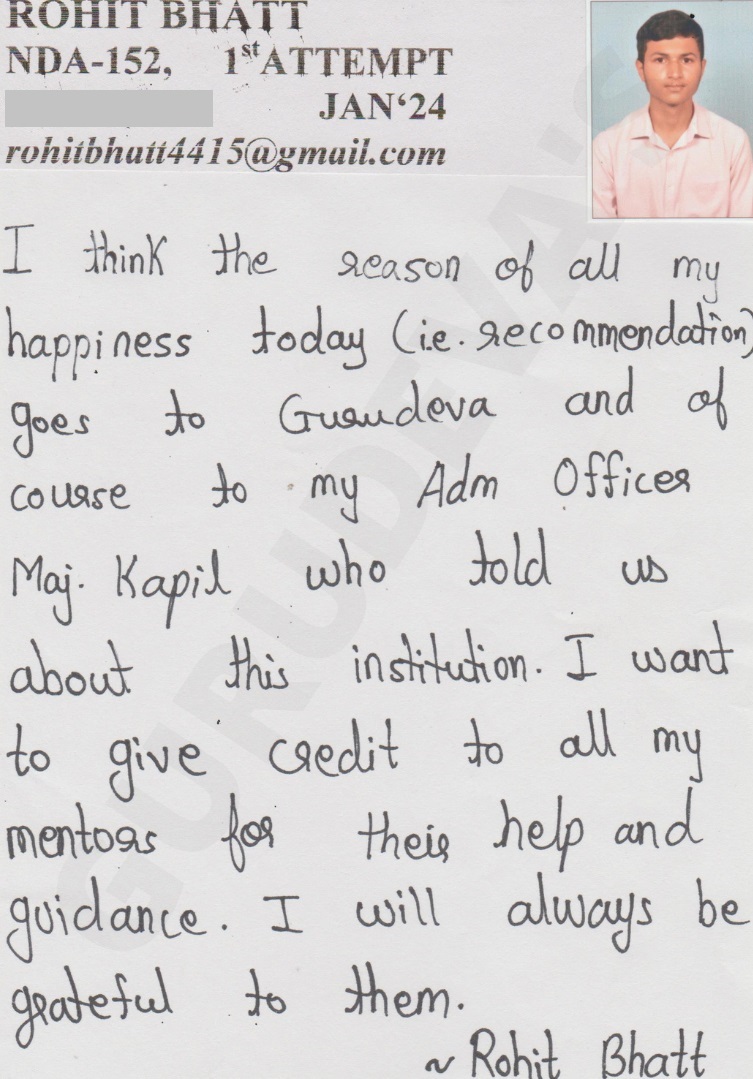 ROHIT BHATT
NDA-152, 1st ATTEMPT
JAN‘24
rohitbhatt4415@gmail.com
I think the reason of all my
happiness today (i.e. recommendation)
goes to Gurudeva and of
course to my Adm Officer
Maj. Kapil who told us
about this institution. I want
to give credit to all my
mentors for their help and
guidance. I will always be
grateful to them.
~ Rohit Bhatt
GURUDEVA'S